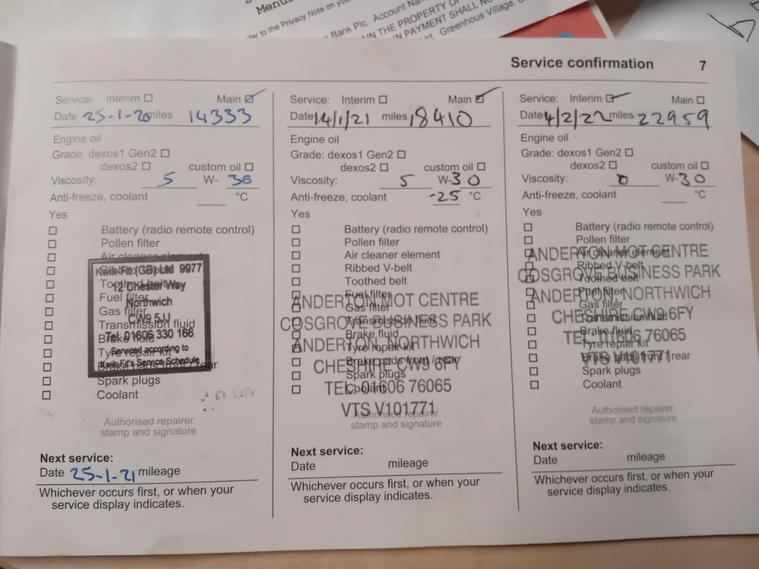 Menu
er to the Privacy Note on you
Bank Plc. Account Na
N THE PROPERTY O
IN PAYMENT SHALL NO
Greenhous Village.
Service confirmation 7
Service: Interim Main
Date 25-1-20 miles 14333
Engine oil
Grade: dexos1 Gen2
dexos2 custom oil
Viscosity: 5 W- 30
Anti-freeze, coolant °C
Yes
Battery (radio remote control)
Pollen filter
Air cleaner element
Kwik-Fit (GB) Ltd 9977
12 Chester Way
Northwich
CW9 5JJ
Tel: 01606 330 166
Serviced according to
Kwik-Fit's Service Schedule
Fuel filter
Gas filter
Transmission fluid
Brake fluid
Tyre repair kit
Spark plugs
Coolant
Authorised repairer
stamp and signature
Next service:
Date 25-1-21 mileage
Whichever occurs first, or when your
service display indicates.
Service: Interim Main
Date 14/1/21 miles 18410
Engine oil
Grade: dexos1 Gen2
dexos2 custom oil
Viscosity: 5 W-30
Anti-freeze, coolant -25 °C
Yes
Battery (radio remote control)
Pollen filter
Air cleaner element
Ribbed V-belt
Toothed belt
Fuel filter
ANDERTON MOT CENTRE
Gas filter
COSGROVE BUSINESS PARK
Brake fluid
ANDERTON, NORTHWICH
Tyre repair kit
Brake pads front / rear
CHESHIRE CW9 6FY
Spark plugs
TEL: 01606 76065
Coolant
VTS V101771
Authorised repairer
stamp and signature
Next service:
Date mileage
Whichever occurs first, or when your
service display indicates.
Service: Interim Main
Date 4/2/22 miles 22959
Engine oil
Grade: dexos1 Gen2
dexos2 custom oil
Viscosity: 0 W-30
Anti-freeze, coolant °C
Yes
Battery (radio remote control)
Pollen filter
ANDERTON MOT CENTRE
Air cleaner element
Ribbed V-belt
COSGROVE BUSINESS PARK
Toothed belt
Fuel filter
ANDERTON, NORTHWICH
Gas filter
CHESHIRE CW9 6FY
Brake fluid
TEL: 01606 76065
Tyre repair kit
VTS V101771
Brake pads front / rear
Spark plugs
Coolant
Authorised repairer
stamp and signature
Next service:
Date mileage
Whichever occurs first, or when your
service display indicates.